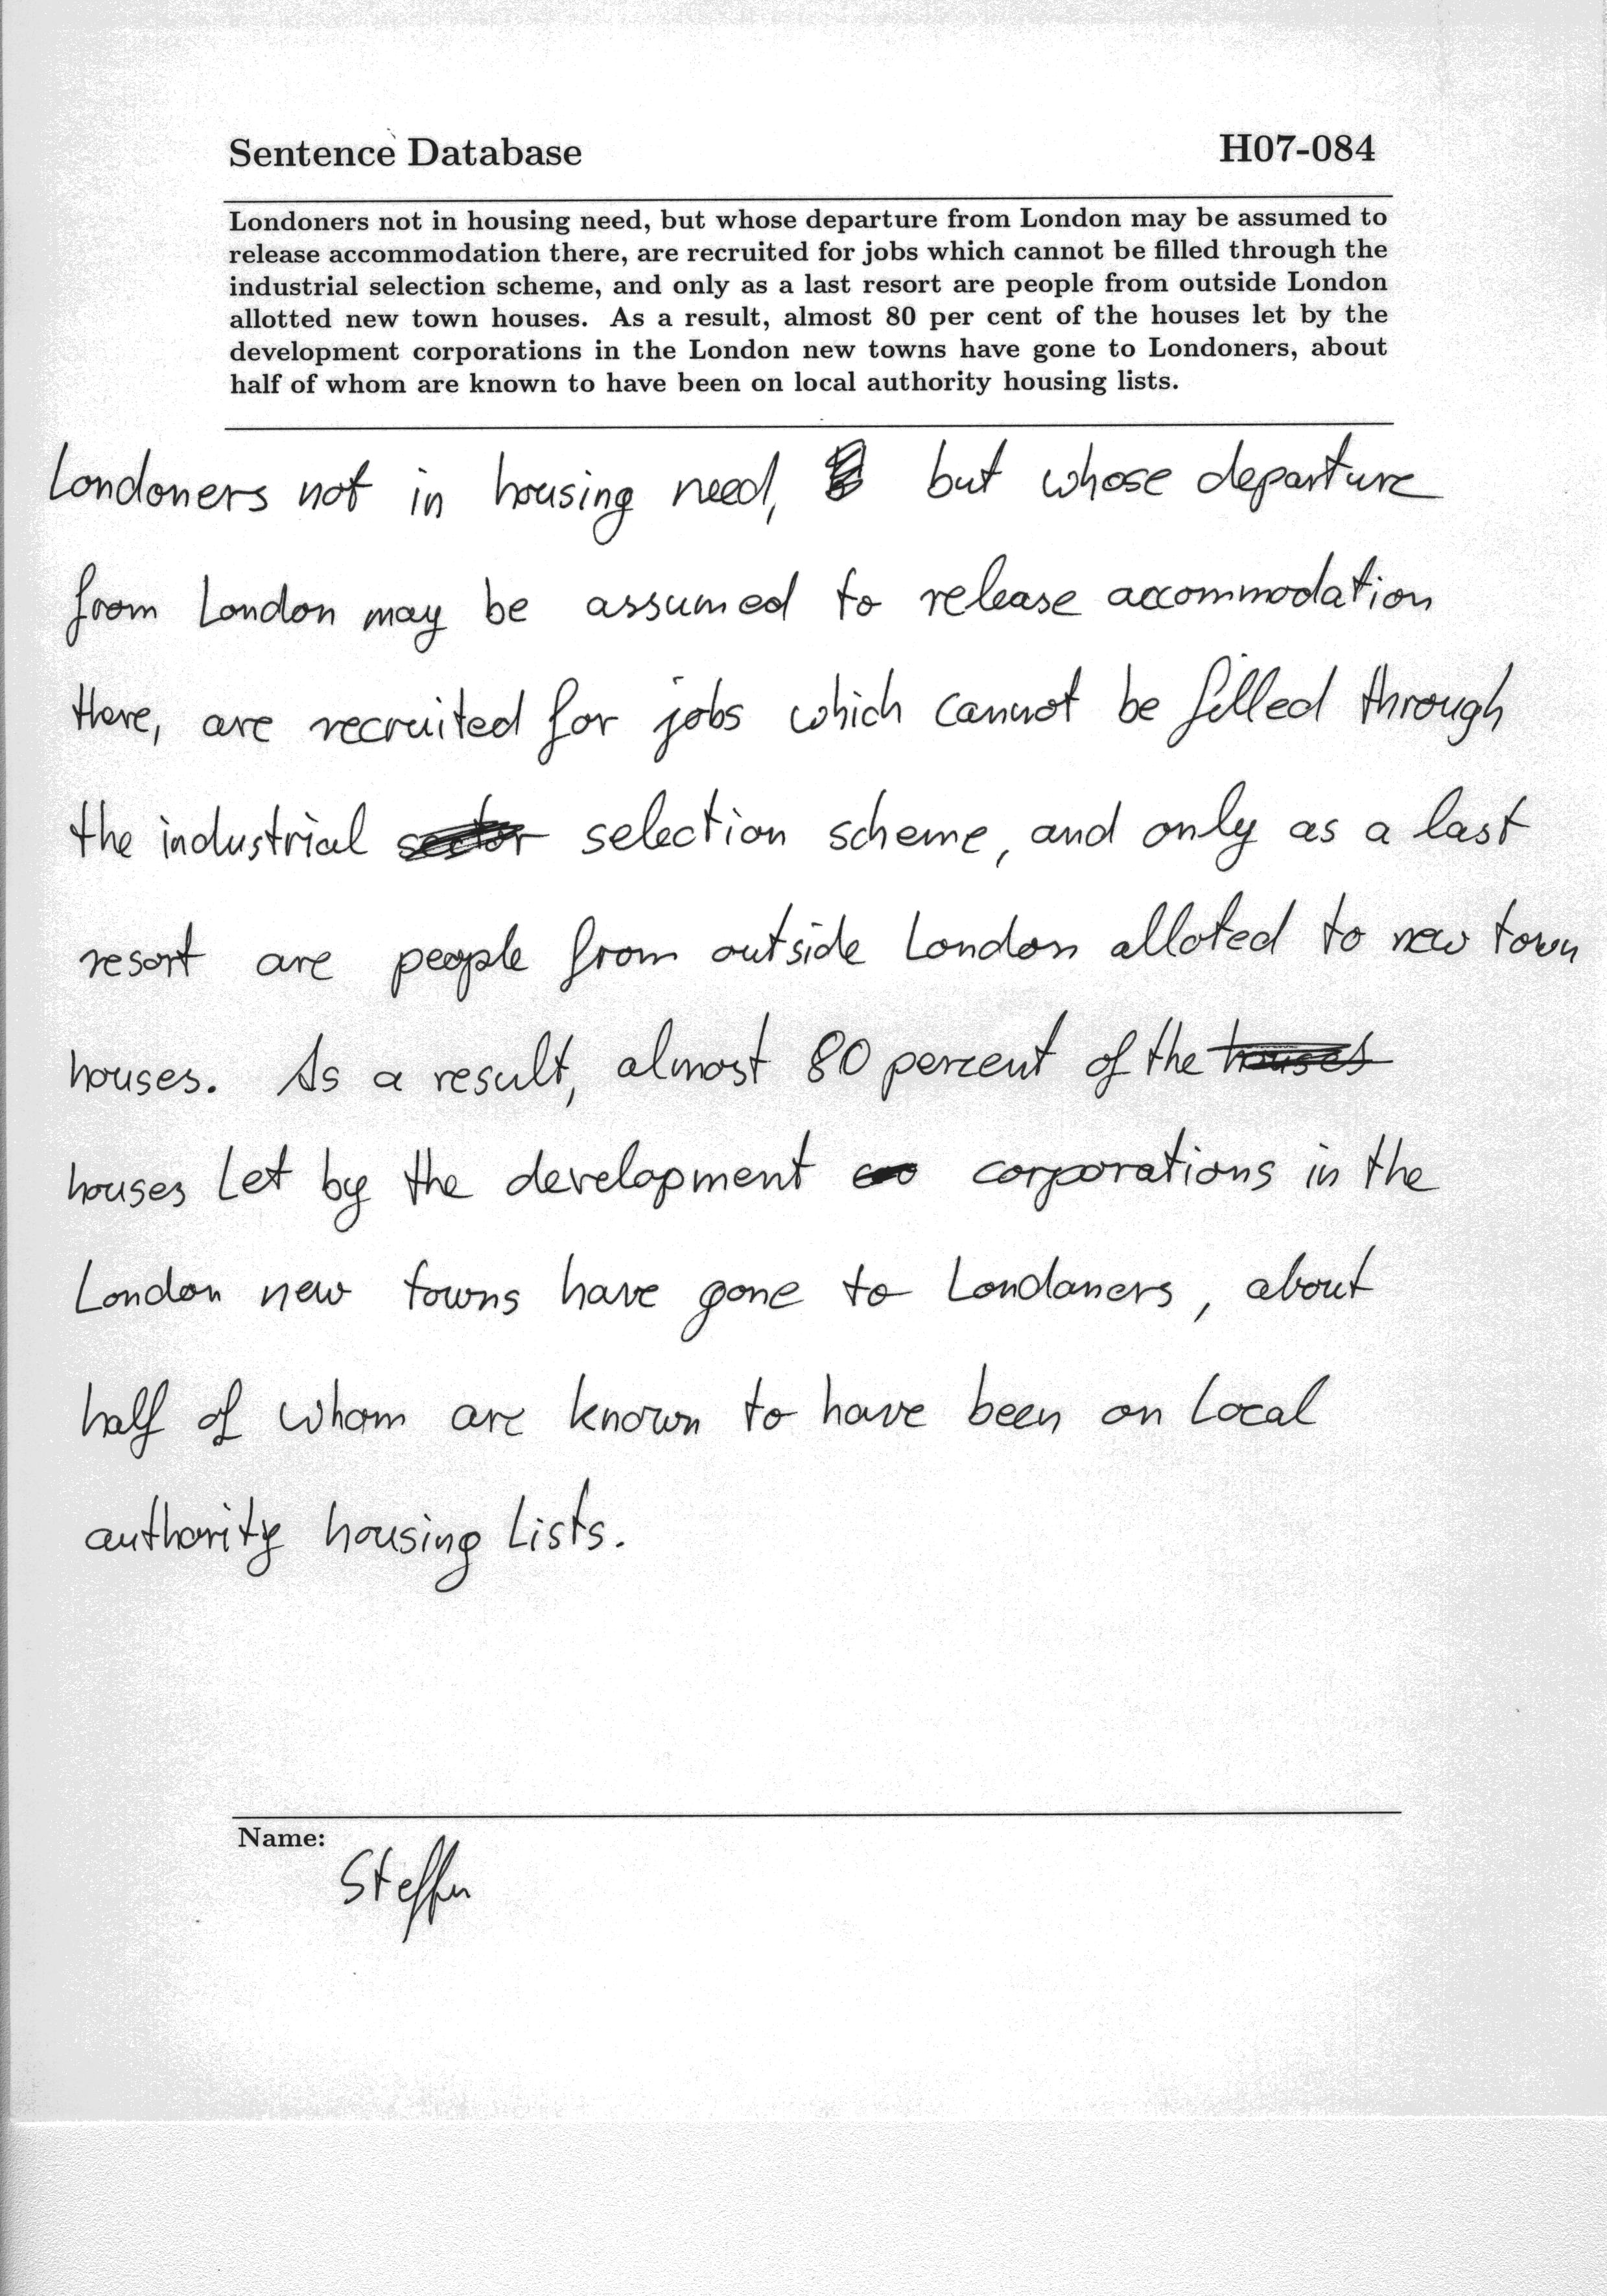 Sentence Database H07-084
Londoners not in housing need, but whose departure from London may be assumed to
release accommodation there, are recruited for jobs which cannot be filled through the
industrial selection scheme, and only as a last resort are people from outside London
allotted new town houses. As a result, almost 80 per cent of the houses let by the
development corporations in the London new towns have gone to Londoners, about
half of whom are known to have been on local authority housing lists.
Londoners not in housing need, but whose departure
from London may be assumed to release accommodation
there, are recruited for jobs which cannot be filled through
the industrial selection scheme, and only as a last
resort are people from outside London alloted to new town
houses. As a result, almost 80 percent of the houses
houses let by the development corporations in the
London new towns have gone to Londoners, about
half of whom are known to have been on local
authority housing lists.
Name:
Steffen